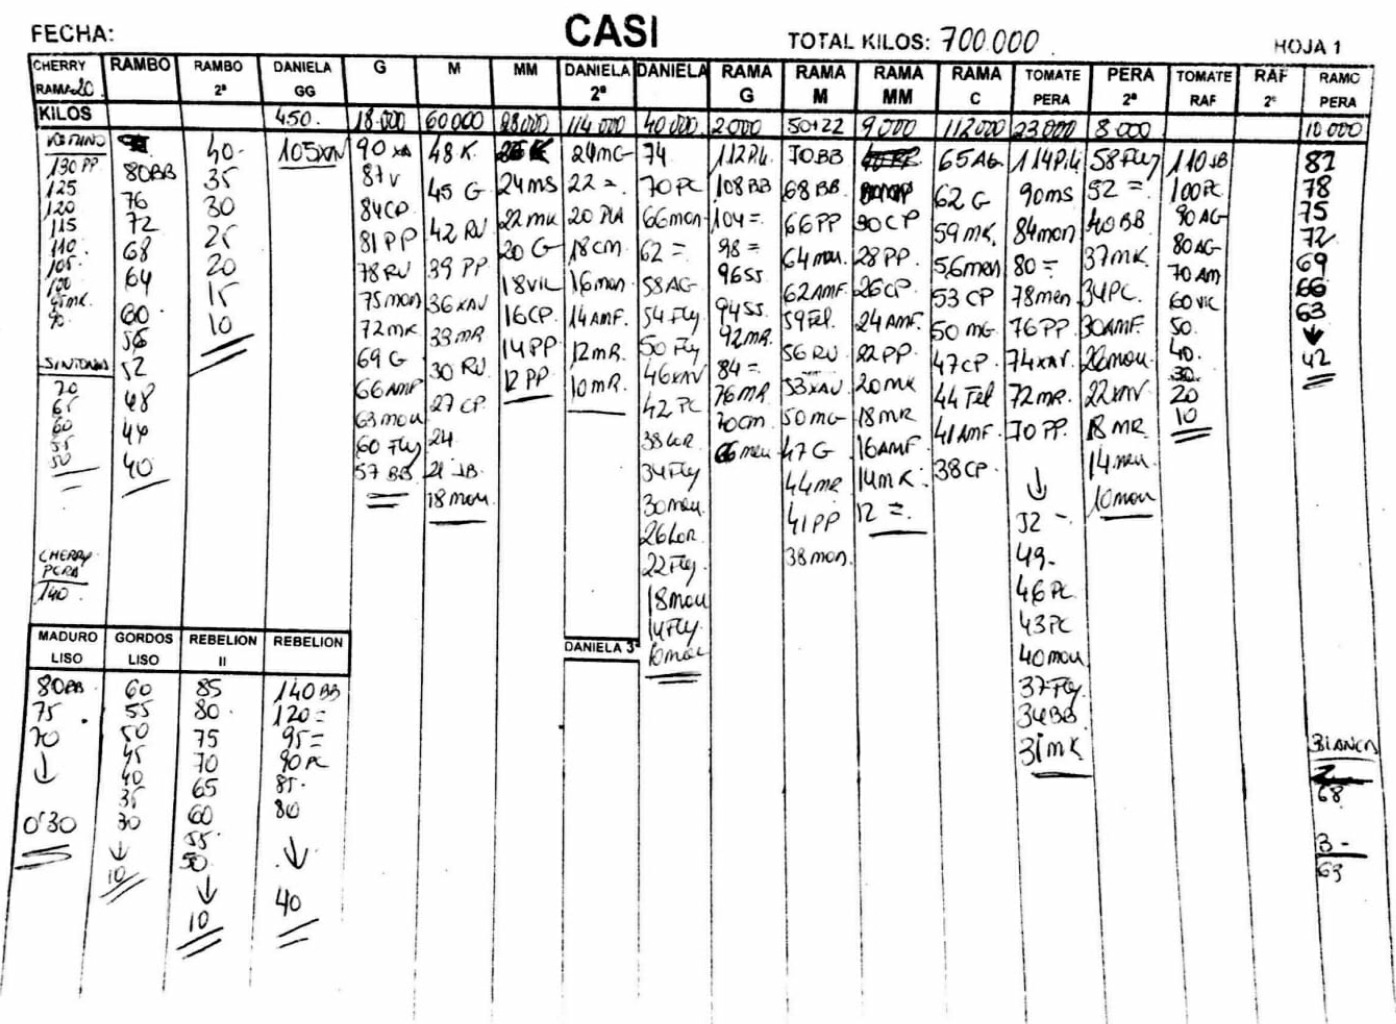 FECHA:
CASI
TOTAL KILOS: 700.000
HOJA 1
CHERRY RAMA 20
RAMBO
RAMBO 2ª
DANIELA GG
G
M
MM
DANIELA 2ª
DANIELA
RAMA G
RAMA M
RAMA MM
RAMA C
TOMATE PERA
PERA 2ª
TOMATE RAF
RAF 2ª
RAMO PERA
KILOS
450.
18.000
60000
28000
114.000
40.000
2000
50+22
9000
112000
23.000
8.000
10000
130 PP
125
120
115
110
105
100
95 MK
90
70
65
60
55
50
CHERRY
PERA
140
80BB
76
72
68
64
60
56
52
48
44
40
40-
35
30
25
20
15
10
105XAV
90 XA
87V
84CP
81 PP
78RU
75mon
72mK
69 G
66 AMF
63mou
60 Fly
57 BB
48 K.
45 G
42 RU
39 PP
36XAV
33mR
30 RU
27 CP
24
21 JB
18mou
24ms
22mK
20 G
18VIL
16CP.
14PP
12 PP
24mG
22 =
20 PLA
18cm
16mon
14AMF.
12mR.
10mR.
74
70PC
66mon
62 =
58AG
54Fly
50 Fly
46XAV
42 PC
38Lor
34Fly
30mou
26Lor
22Fly
18mou
14Fly
10mou
112PiL
108BB
104=
98 =
96SS
94SS
92mR
84 =
76MR
70cm
66 mou
70BB
68 BB
66PP
64mou
62AMF
59Fel
56RU
53XAV
50mG
47G
44mR
41PP
38mon
30CP
28PP
26CP
24AMF.
22PP
20mK
18MR
16AMF
14mK
12 =
65AG
62 G
59mK
56mon
53 CP
50 mG
47CP
44 Fel
41 AMF
38CP
114PiL
90ms
84mon
80 =
78men
76PP
74XAV
72mR
70PP
↓
52 -
49-
46PC
43PC
40mou
37Fly
34BB
31mK
58Fly
52 =
40BB
37mK
34PC.
30AMF
26mou
22XAV
18MR
14mou
10mou
110JB
100PC
90AG
80AG
70Am
60VIC
50.
40.
30
20
10
81
78
75
72
69
66
63
↓
42
DANIELA 3ª
MADURO LISO
GORDOS LISO
REBELION II
REBELION
80BB
75
70
↓
0'30
60
55
50
45
40
35
30
↓
10
85
80
75
70
65
60
55
50
↓
10
140BB
120=
95=
90PC
85
80
↓
40
BIANCA
68
3 -
63